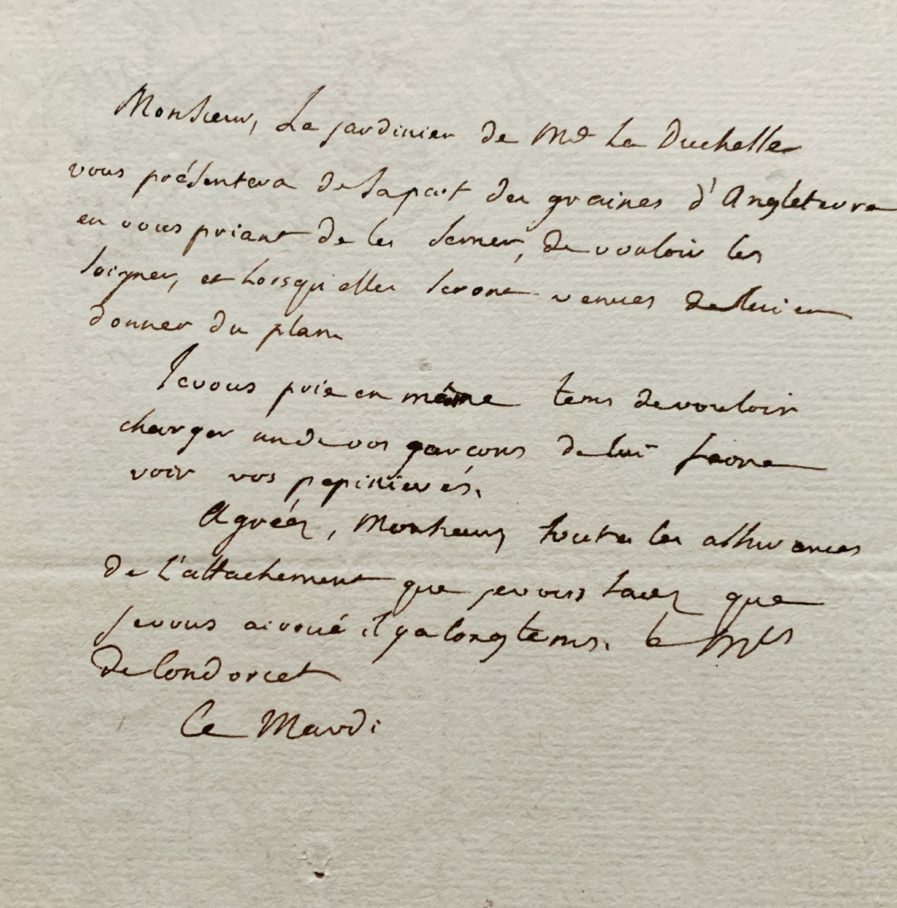 Monsieur, Le jardinier de Md La Duchesse
vous présentera de sa part des graines d'Angleterre
en vous priant de les semer, de vouloir les
soigner, et Lorsqu'elles seront venues de lui en
donner du plan
Je vous prie en même tems de vouloir
charger un de vos garçons de lui faire
voir vos pepinieres.
Agréez, Monsieur, toutes les assurances
de l'attachement que je vous que
je vous ai voué il y a longtems. le Mis
de Condorcet
Ce Mardi